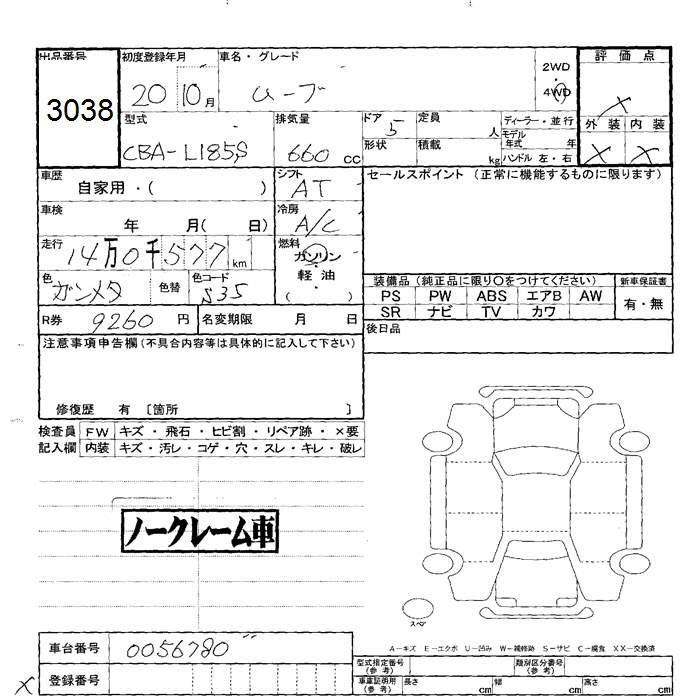 出品番号
3038
初度登録年月
20 10月
車名・グレード
ムーブ
2WD
4WD
評価点
X
外装 内装
X X
型式
CBA-L185S
排気量
660 cc
ドア
5
定員
人
形状
積載
kg
ディーラー・並行
モデル年式 年
ハンドル 左・右
車歴
自家用・( )
シフト
AT
セールスポイント (正常に機能するものに限ります)
車検
年 月( 日)
冷房
A/C
走行
14万0千577km
燃料
ガソリン
軽油
( )
色
ガンメタ
色替
色コード
S35
装備品 (純正品に限り○をつけてください)
新車保証書
PS PW ABS エアB AW
SR ナビ TV カワ
有・無
R券 9260 円
名変期限 月 日
後日品
注意事項申告欄(不具合内容等は具体的に記入して下さい)
修復歴 有 〔箇所 〕
検査員 FW キズ・飛石・ヒビ割・リペア跡・×要
記入欄 内装 キズ・汚レ・コゲ・穴・スレ・キレ・破レ
ノークレーム車
スペア
A-キズ E-エクボ U-凹み W-補修跡 S-サビ C-腐食 XX-交換済
車台番号 0056780
X 登録番号
型式指定番号(参考)
類別区分番号(参考)
車庫証明用(参考) 長さ cm 幅 cm 高さ cm